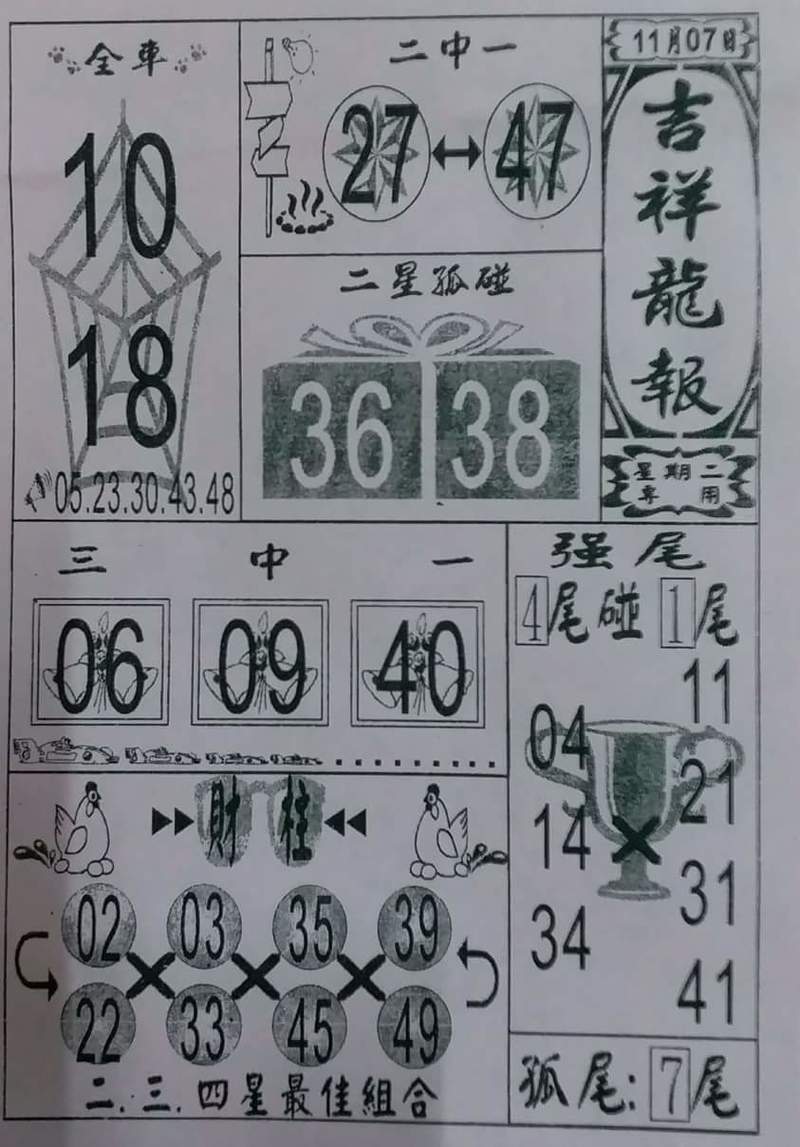 11月07日
吉祥龍報
星期二
專用
全車
10
18
05.23.30.43.48
二中一
27 47
二星孤碰
36 38
三中一
06 09 40
强尾
4尾碰1尾
04 14 34
11 21 31 41
財柱
02 03 35 39
22 33 45 49
二.三.四星最佳組合
孤尾:7尾